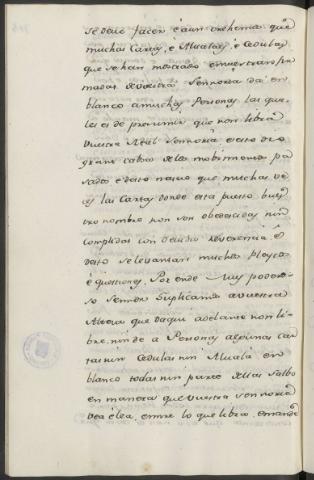 se deve facer é aun vehemos que
muchas Cartas, é Alvalaes, é Cedulas
que se han mostrado é muestran fir
madas de vuestra Sennoria dá en
blanco a muchas Personas las qua
les es de presumir que non libra
vuestra Real Sennoria é esto dio
grant cabsa de los mobimientos pa
sados é desto nasce que muchas ve
ces las Cartas donde está puesto bues
tro nombre non son obedecidas nin
complidas con devida reverencia, é
desto se levantan muchos pleytos
é questiones, Por ende Muy podero
so Sennor Suplicamos a vuestra
Alteza que de aqui adelante non li
bre nin de a Personas algunas car
tas nin Cedulas nin Alvalá en
blanco todas nin parte dellas Salbo
en manera que vuestra Sennoria
vea é lea, como lo que libra, é mande